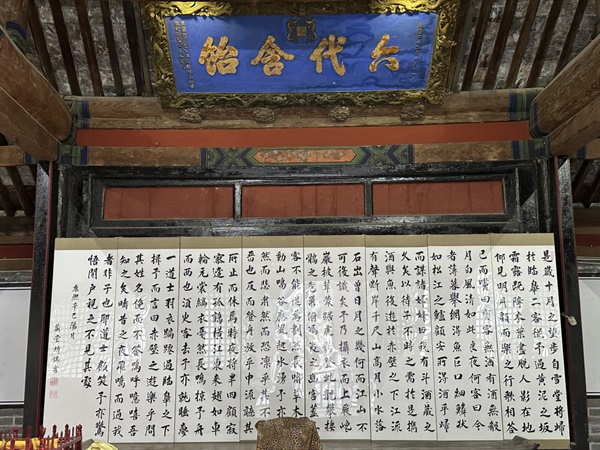 六代含飴
是歲十月之望步自雪堂將歸
於臨皋二客從予過黃泥之坂
霜露既降木葉盡脫人影在地
仰見明月顧而樂之行歌相答
已而嘆曰有客無酒有酒無殽
月白風清如此良夜何客曰今
者薄暮舉網得魚巨口細鱗狀
如松江之鱸顧安所得酒乎歸
而謀諸婦婦曰我有斗酒藏之
久矣以待子不時之需於是攜
酒與魚復遊於赤壁之下江流
有聲斷岸千尺山高月小水落
石出曾日月之幾何而江山不
可復識矣予乃攝衣而上履巉
巖披蒙茸踞虎豹登虬龍攀棲
鶻之危巢俯馮夷之幽宮蓋二
客不能從焉劃然長嘯草木震
動山鳴谷應風起水湧予亦悄
然而悲肅然而恐凜乎其不可
留也反而登舟放乎中流聽其
所止而休焉時夜將半四顧寂
寥適有孤鶴橫江東來翅如車
輪元裳縞衣戛然長鳴掠予舟
而西也須臾客去予亦就睡夢
一道士羽衣蹁躚過臨皋之下
揖予而言曰赤壁之遊樂乎問
其姓名俛而不答嗚呼噫嘻吾
知之矣疇昔之夜飛鳴而過我
者非子也耶道士顧笑予亦驚
悟開戶視之不見其處